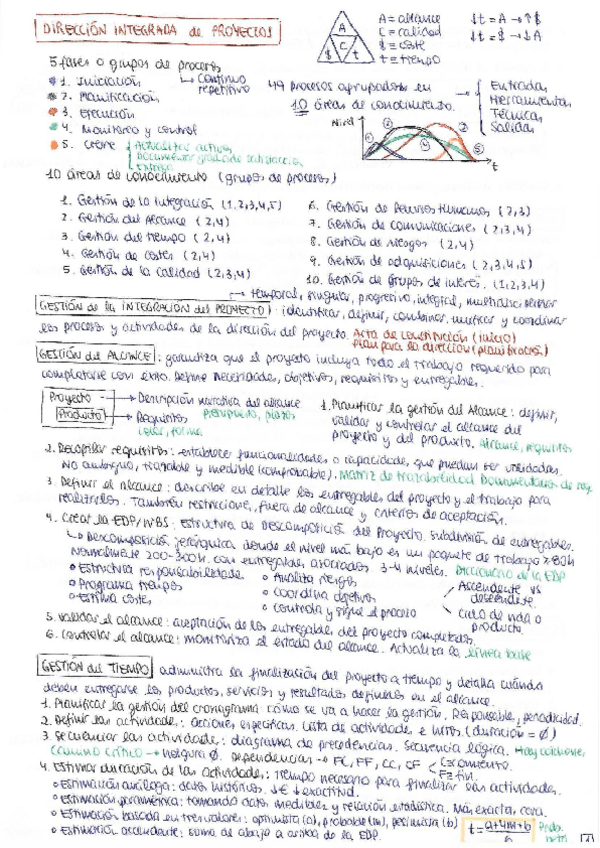 DIRECCIÓN INTEGRADA de PROYECTOS
A
C
$
t
A = alcance
C = calidad
$ = coste
t = tiempo
↓t = A → ↑$
↓t = $ → ↓A
5 fases o grupos de procesos
↳ continuo repetitivo
1. Iniciación
2. Planificación
3. Ejecución
4. Monitoreo y control
5. Cierre
Actualizar activos
Documentar grado de satisfacción
49 procesos agrupados en
10 áreas de conocimiento.
Entradas
Herramientas
Técnicas
Salidas
Nivel
t
10 áreas de conocimiento (grupos de procesos)
1. Gestión de la Integración (1,2,3,4,5)
2. Gestión del Alcance (2,4)
3. Gestión del tiempo (2,4)
4. Gestión de costes (2,4)
5. Gestión de la calidad (2,3,4)
6. Gestión de Recursos Humanos (2,3)
7. Gestión de comunicaciones (2,3,4)
8. Gestión de riesgos (2,4)
9. Gestión de adquisiciones (2,3,4,5)
10. Gestión de grupos de interés. (1,2,3,4)
↳ temporal, singular, progresivo, integral,
GESTIÓN de la INTEGRACIÓN del PROYECTO: identificar, definir, combinar, unificar y coordinar
los procesos y actividades de la dirección del proyecto. Acta de constitución (inicio)
Plan para la dirección (planificación)
GESTIÓN del ALCANCE: garantiza que el proyecto incluya todo el trabajo requerido para
completarse con éxito. Define necesidades, objetivos, requisitos y entregables.
Proyecto → Descripción narrativa del alcance
Producto → Requisitos
presupuesto, plazos
color, forma
1. Planificar la gestión del Alcance: definir,
validar y controlar el alcance del
proyecto y del producto. Alcance, requisitos
2. Recopilar requisitos: establecer funcionalidades o capacidades que puedan ser validadas.
No ambiguo, trazable y medible (comprobable). Matriz de trazabilidad Documentación de req.
3. Definir el alcance: describe en detalle los entregables del proyecto y el trabajo para
realizarlos. También restricciones, fuera de alcance y criterios de aceptación.
4. Crear la EDP/WBS: Estructura de Descomposición del Proyecto. Subdivisión de entregables.
↳ Descomposición jerárquica donde el nivel más bajo es un paquete de trabajo ≥80h
Normalmente 200-300h. con entregables asociados. 3-4 niveles. Diccionario de la EDP
Estructura responsabilidades
Programa tiempos
Estima costes
Analiza riesgos
Coordina objetivos
Controla y sigue el proceso
Ascendente vs descendente.
Ciclo de vida o producto.
5. Validar el alcance: aceptación de los entregables del proyecto completados.
6. Controlar el alcance: monitoriza el estado del alcance. Actualiza la línea base
GESTIÓN del TIEMPO: administra la finalización del proyecto a tiempo y detalla cuándo
deben entregarse los productos, servicios y resultados definidos en el alcance.
1. Planificar la gestión del cronograma: cómo se va a hacer la gestión. Responsable, periodicidad.
2. Definir las actividades: acciones específicas. Lista de actividades e hitos (duración = 0)
3. Secuenciar las actividades: diagrama de precedencias. Secuencia lógica.
Camino crítico → holgura 0. Dependencias → FC, FF, CC, CF
C ≡ comienzo.
F ≡ fin.
4. Estimar duración de las actividades: tiempo necesario para finalizar las actividades.
Estimación análoga: datos históricos. ↓€ ↓exactitud.
Estimación paramétrica: tomando datos medibles y relación estadística. Más exacta, cara.
Estimación basada en tres valores: optimista (a), probable (m), pesimista (b)
t = a+4m+b / 6
Prob. beta
Estimación ascendente: suma de abajo a arriba de la EDP.
1